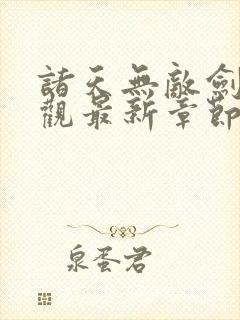 諸天無敵劍
觀最新章節
泉蛋君